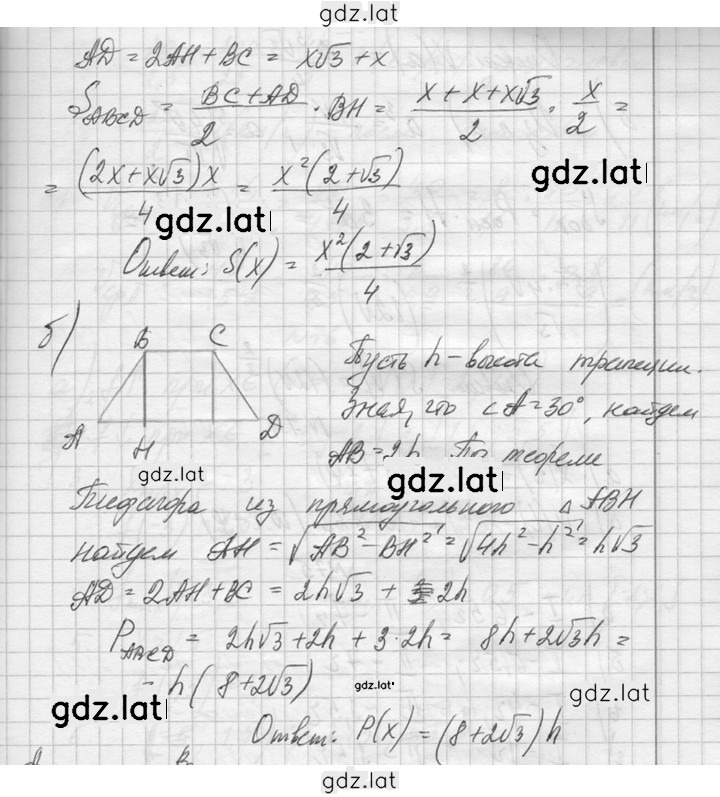 gdz.lat
AD = 2AH + BC = x√3 + x
S_ABCD = (BC + AD)/2 · BH = (x + x + x√3)/2 · x/2 =
= ((2x + x√3)x)/4 = x²(2 + √3)/4
gdz.lat
gdz.lat
Ответ: S(x) = x²(2 + √3)/4
б)
B C
A H D
Пусть h - высота трапеции.
Зная, что ∠A = 30°, найдем
AB = 2h По теореме
gdz.lat
gdz.lat
Пифагора из прямоугольного △ABH
найдем AH = √(AB² - BH²) = √(4h² - h²) = h√3
AD = 2AH + BC = 2h√3 + 2h
P_ABCD = 2h√3 + 2h + 3·2h = 8h + 2√3h =
= h(8 + 2√3)
gdz.lat
gdz.lat
gdz.lat
Ответ: P(x) = (8 + 2√3)h
gdz.lat